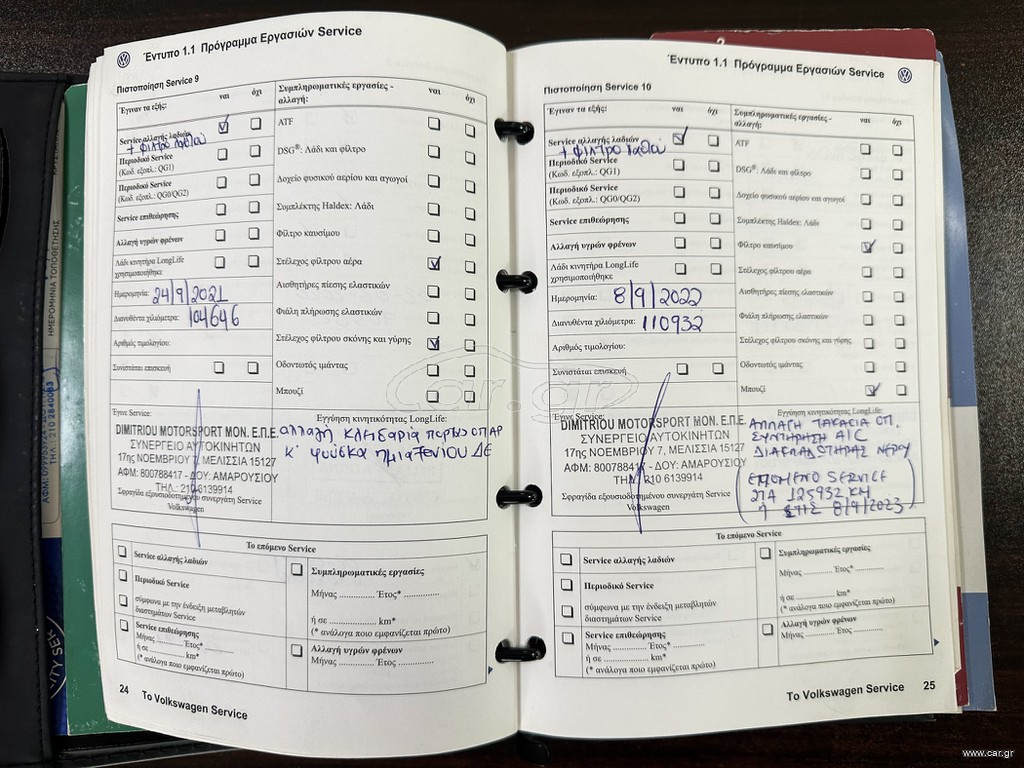 Έντυπο 1.1 Πρόγραμμα Εργασιών Service
Πιστοποίηση Service 9
Έγιναν τα εξής: ναι όχι
Service αλλαγής λαδιών
+ φίλτρο λαδιού
Περιοδικό Service
(Κωδ. εξοπλ.: QG1)
Περιοδικό Service
(Κωδ. εξοπλ.: QG0/QG2)
Service επιθεώρησης
Αλλαγή υγρών φρένων
Λάδι κινητήρα LongLife
χρησιμοποιήθηκε
Ημερομηνία: 24/9/2021
Διανυθέντα χιλιόμετρα: 104646
Αριθμός τιμολογίου:
Συνιστάται επισκευή
Συμπληρωματικές εργασίες -
αλλαγή: ναι όχι
ATF
DSG®: Λάδι και φίλτρο
Δοχείο φυσικού αερίου και αγωγοί
Συμπλέκτης Haldex: Λάδι
Φίλτρο καυσίμου
Στέλεχος φίλτρου αέρα
Αισθητήρες πίεσης ελαστικών
Φιάλη πλήρωσης ελαστικών
Στέλεχος φίλτρου σκόνης και γύρης
Οδοντωτός ιμάντας
Μπουζί
Έγινε Service:
DIMITRIOU MOTORSPORT ΜΟΝ. Ε.Π.Ε.
ΣΥΝΕΡΓΕΙΟ ΑΥΤΟΚΙΝΗΤΩΝ
17ης ΝΟΕΜΒΡΙΟΥ 7, ΜΕΛΙΣΣΙΑ 15127
ΑΦΜ: 800788417 - ΔΟΥ: ΑΜΑΡΟΥΣΙΟΥ
ΤΗΛ.: 210 6139914
Σφραγίδα εξουσιοδοτημένου συνεργάτη Service
Volkswagen
Εγγύηση κινητικότητας LongLife:
αλλαγή κλειδαριά πορτων οπ ΑΡ
κ' φουσκα ημιαξονιου ΔΕ
Το επόμενο Service
Service αλλαγής λαδιών
Περιοδικό Service
σύμφωνα με την ένδειξη μεταβλητών
διαστημάτων Service
Service επιθεώρησης
Μήνας ............ Έτος* ............
ή σε ............ km*
(* ανάλογα ποιο εμφανίζεται πρώτο)
Συμπληρωματικές εργασίες
Μήνας ............ Έτος* ............
ή σε ............ km*
(* ανάλογα ποιο εμφανίζεται πρώτο)
Αλλαγή υγρών φρένων
Μήνας ............ Έτος ............
24 Το Volkswagen Service
Έντυπο 1.1 Πρόγραμμα Εργασιών Service
Πιστοποίηση Service 10
Έγιναν τα εξής: ναι όχι
Service αλλαγής λαδιών
+ φίλτρο λαδιού
Περιοδικό Service
(Κωδ. εξοπλ.: QG1)
Περιοδικό Service
(Κωδ. εξοπλ.: QG0/QG2)
Service επιθεώρησης
Αλλαγή υγρών φρένων
Λάδι κινητήρα LongLife
χρησιμοποιήθηκε
Ημερομηνία: 8/9/2022
Διανυθέντα χιλιόμετρα: 110932
Αριθμός τιμολογίου:
Συνιστάται επισκευή
Συμπληρωματικές εργασίες -
αλλαγή: ναι όχι
ATF
DSG®: Λάδι και φίλτρο
Δοχείο φυσικού αερίου και αγωγοί
Συμπλέκτης Haldex: Λάδι
Φίλτρο καυσίμου
Στέλεχος φίλτρου αέρα
Αισθητήρες πίεσης ελαστικών
Φιάλη πλήρωσης ελαστικών
Στέλεχος φίλτρου σκόνης και γύρης
Οδοντωτός ιμάντας
Μπουζί
Έγινε Service:
DIMITRIOU MOTORSPORT ΜΟΝ. Ε.Π.Ε.
ΣΥΝΕΡΓΕΙΟ ΑΥΤΟΚΙΝΗΤΩΝ
17ης ΝΟΕΜΒΡΙΟΥ 7, ΜΕΛΙΣΣΙΑ 15127
ΑΦΜ: 800788417 - ΔΟΥ: ΑΜΑΡΟΥΣΙΟΥ
ΤΗΛ.: 210 6139914
Σφραγίδα εξουσιοδοτημένου συνεργάτη Service
Volkswagen
Εγγύηση κινητικότητας LongLife:
ΑΛΛΑΓΗ ΤΑΚΑΚΙΑ ΟΠ.
ΣΥΝΤΗΡΗΣΗ A/C
ΔΙΑΚΛΑΔΩΤΗΡΑΣ ΝΕΡΟΥ
(ΕΠΟΜΕΝΟ SERVICE
ΣΤΑ 125932 ΚΜ
Ή ΣΤΙΣ 8/9/2023)
Το επόμενο Service
Service αλλαγής λαδιών
Περιοδικό Service
σύμφωνα με την ένδειξη μεταβλητών
διαστημάτων Service
Service επιθεώρησης
Μήνας ............ Έτος* ............
ή σε ............ km*
(* ανάλογα ποιο εμφανίζεται πρώτο)
Συμπληρωματικές εργασίες
Μήνας ............ Έτος* ............
ή σε ............ km*
(* ανάλογα ποιο εμφανίζεται πρώτο)
Αλλαγή υγρών φρένων
Μήνας ............ Έτος ............
Το Volkswagen Service 25
ΗΜΕΡΟΜΗΝΙΑ ΤΟΠΟΘΕΤΗΣΗΣ
car.gr
www.car.gr